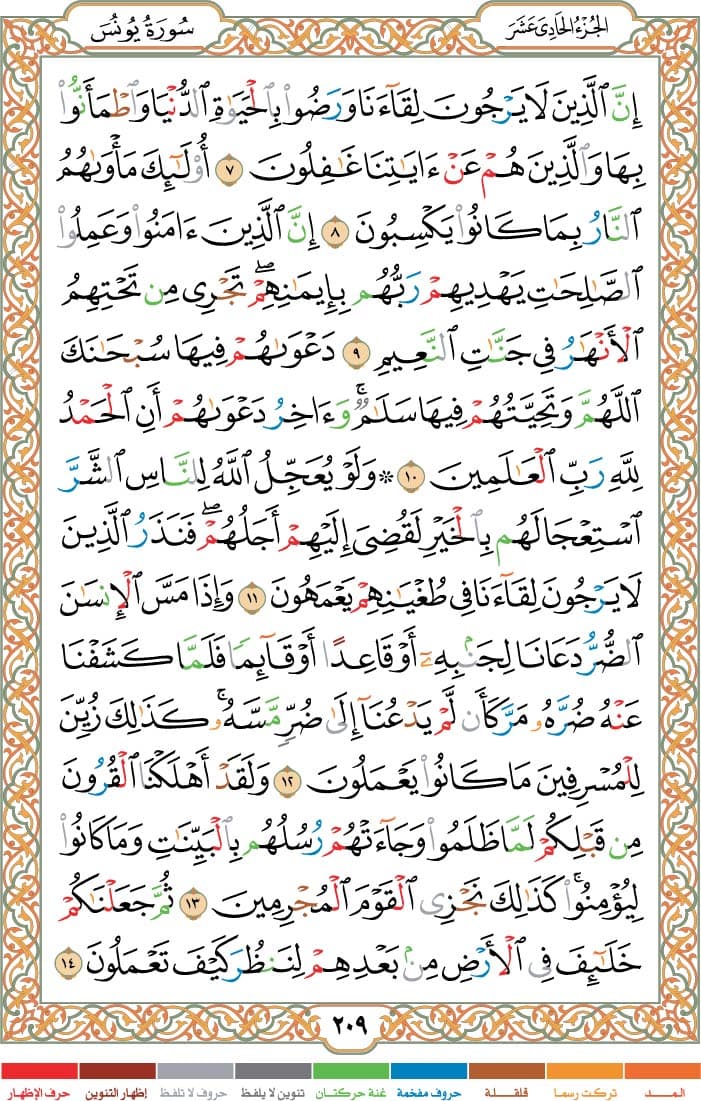 الجُزْءُ الحَادِى عَشَرَ
سُورَةُ يُونُسَ
إِنَّ ٱلَّذِينَ لَا يَرْجُونَ لِقَآءَنَا وَرَضُوا۟ بِٱلْحَيَوٰةِ ٱلدُّنْيَا وَٱطْمَأَنُّوا۟
بِهَا وَٱلَّذِينَ هُمْ عَنْ ءَايَـٰتِنَا غَـٰفِلُونَ ٧ أُو۟لَـٰٓئِكَ مَأْوَىٰهُمُ
ٱلنَّارُ بِمَا كَانُوا۟ يَكْسِبُونَ ٨ إِنَّ ٱلَّذِينَ ءَامَنُوا۟ وَعَمِلُوا۟
ٱلصَّـٰلِحَـٰتِ يَهْدِيهِمْ رَبُّهُم بِإِيمَـٰنِهِمْ ۖ تَجْرِى مِن تَحْتِهِمُ
ٱلْأَنْهَـٰرُ فِى جَنَّـٰتِ ٱلنَّعِيمِ ٩ دَعْوَىٰهُمْ فِيهَا سُبْحَـٰنَكَ
ٱللَّهُمَّ وَتَحِيَّتُهُمْ فِيهَا سَلَـٰمٌ ۚ وَءَاخِرُ دَعْوَىٰهُمْ أَنِ ٱلْحَمْدُ
لِلَّهِ رَبِّ ٱلْعَـٰلَمِينَ ١٠ ۞ وَلَوْ يُعَجِّلُ ٱللَّهُ لِلنَّاسِ ٱلشَّرَّ
ٱسْتِعْجَالَهُم بِٱلْخَيْرِ لَقُضِىَ إِلَيْهِمْ أَجَلُهُمْ ۖ فَنَذَرُ ٱلَّذِينَ
لَا يَرْجُونَ لِقَآءَنَا فِى طُغْيَـٰنِهِمْ يَعْمَهُونَ ١١ وَإِذَا مَسَّ ٱلْإِنسَـٰنَ
ٱلضُّرُّ دَعَانَا لِجَنۢبِهِۦٓ أَوْ قَاعِدًا أَوْ قَآئِمًا فَلَمَّا كَشَفْنَا
عَنْهُ ضُرَّهُۥ مَرَّ كَأَن لَّمْ يَدْعُنَآ إِلَىٰ ضُرٍّ مَّسَّهُۥ ۚ كَذَٰلِكَ زُيِّنَ
لِلْمُسْرِفِينَ مَا كَانُوا۟ يَعْمَلُونَ ١٢ وَلَقَدْ أَهْلَكْنَا ٱلْقُرُونَ
مِن قَبْلِكُمْ لَمَّا ظَلَمُوا۟ وَجَآءَتْهُمْ رُسُلُهُم بِٱلْبَيِّنَـٰتِ وَمَا كَانُوا۟
لِيُؤْمِنُوا۟ ۚ كَذَٰلِكَ نَجْزِى ٱلْقَوْمَ ٱلْمُجْرِمِينَ ١٣ ثُمَّ جَعَلْنَـٰكُمْ
خَلَـٰٓئِفَ فِى ٱلْأَرْضِ مِنۢ بَعْدِهِمْ لِنَنظُرَ كَيْفَ تَعْمَلُونَ ١٤
٢٠٩
المـــد تركت رسما قلقـلة حروف مفخمة غنة حركتـان تنوين لا يلفظ حروف لا تلفظ إظهار التنوين حرف الإظهار